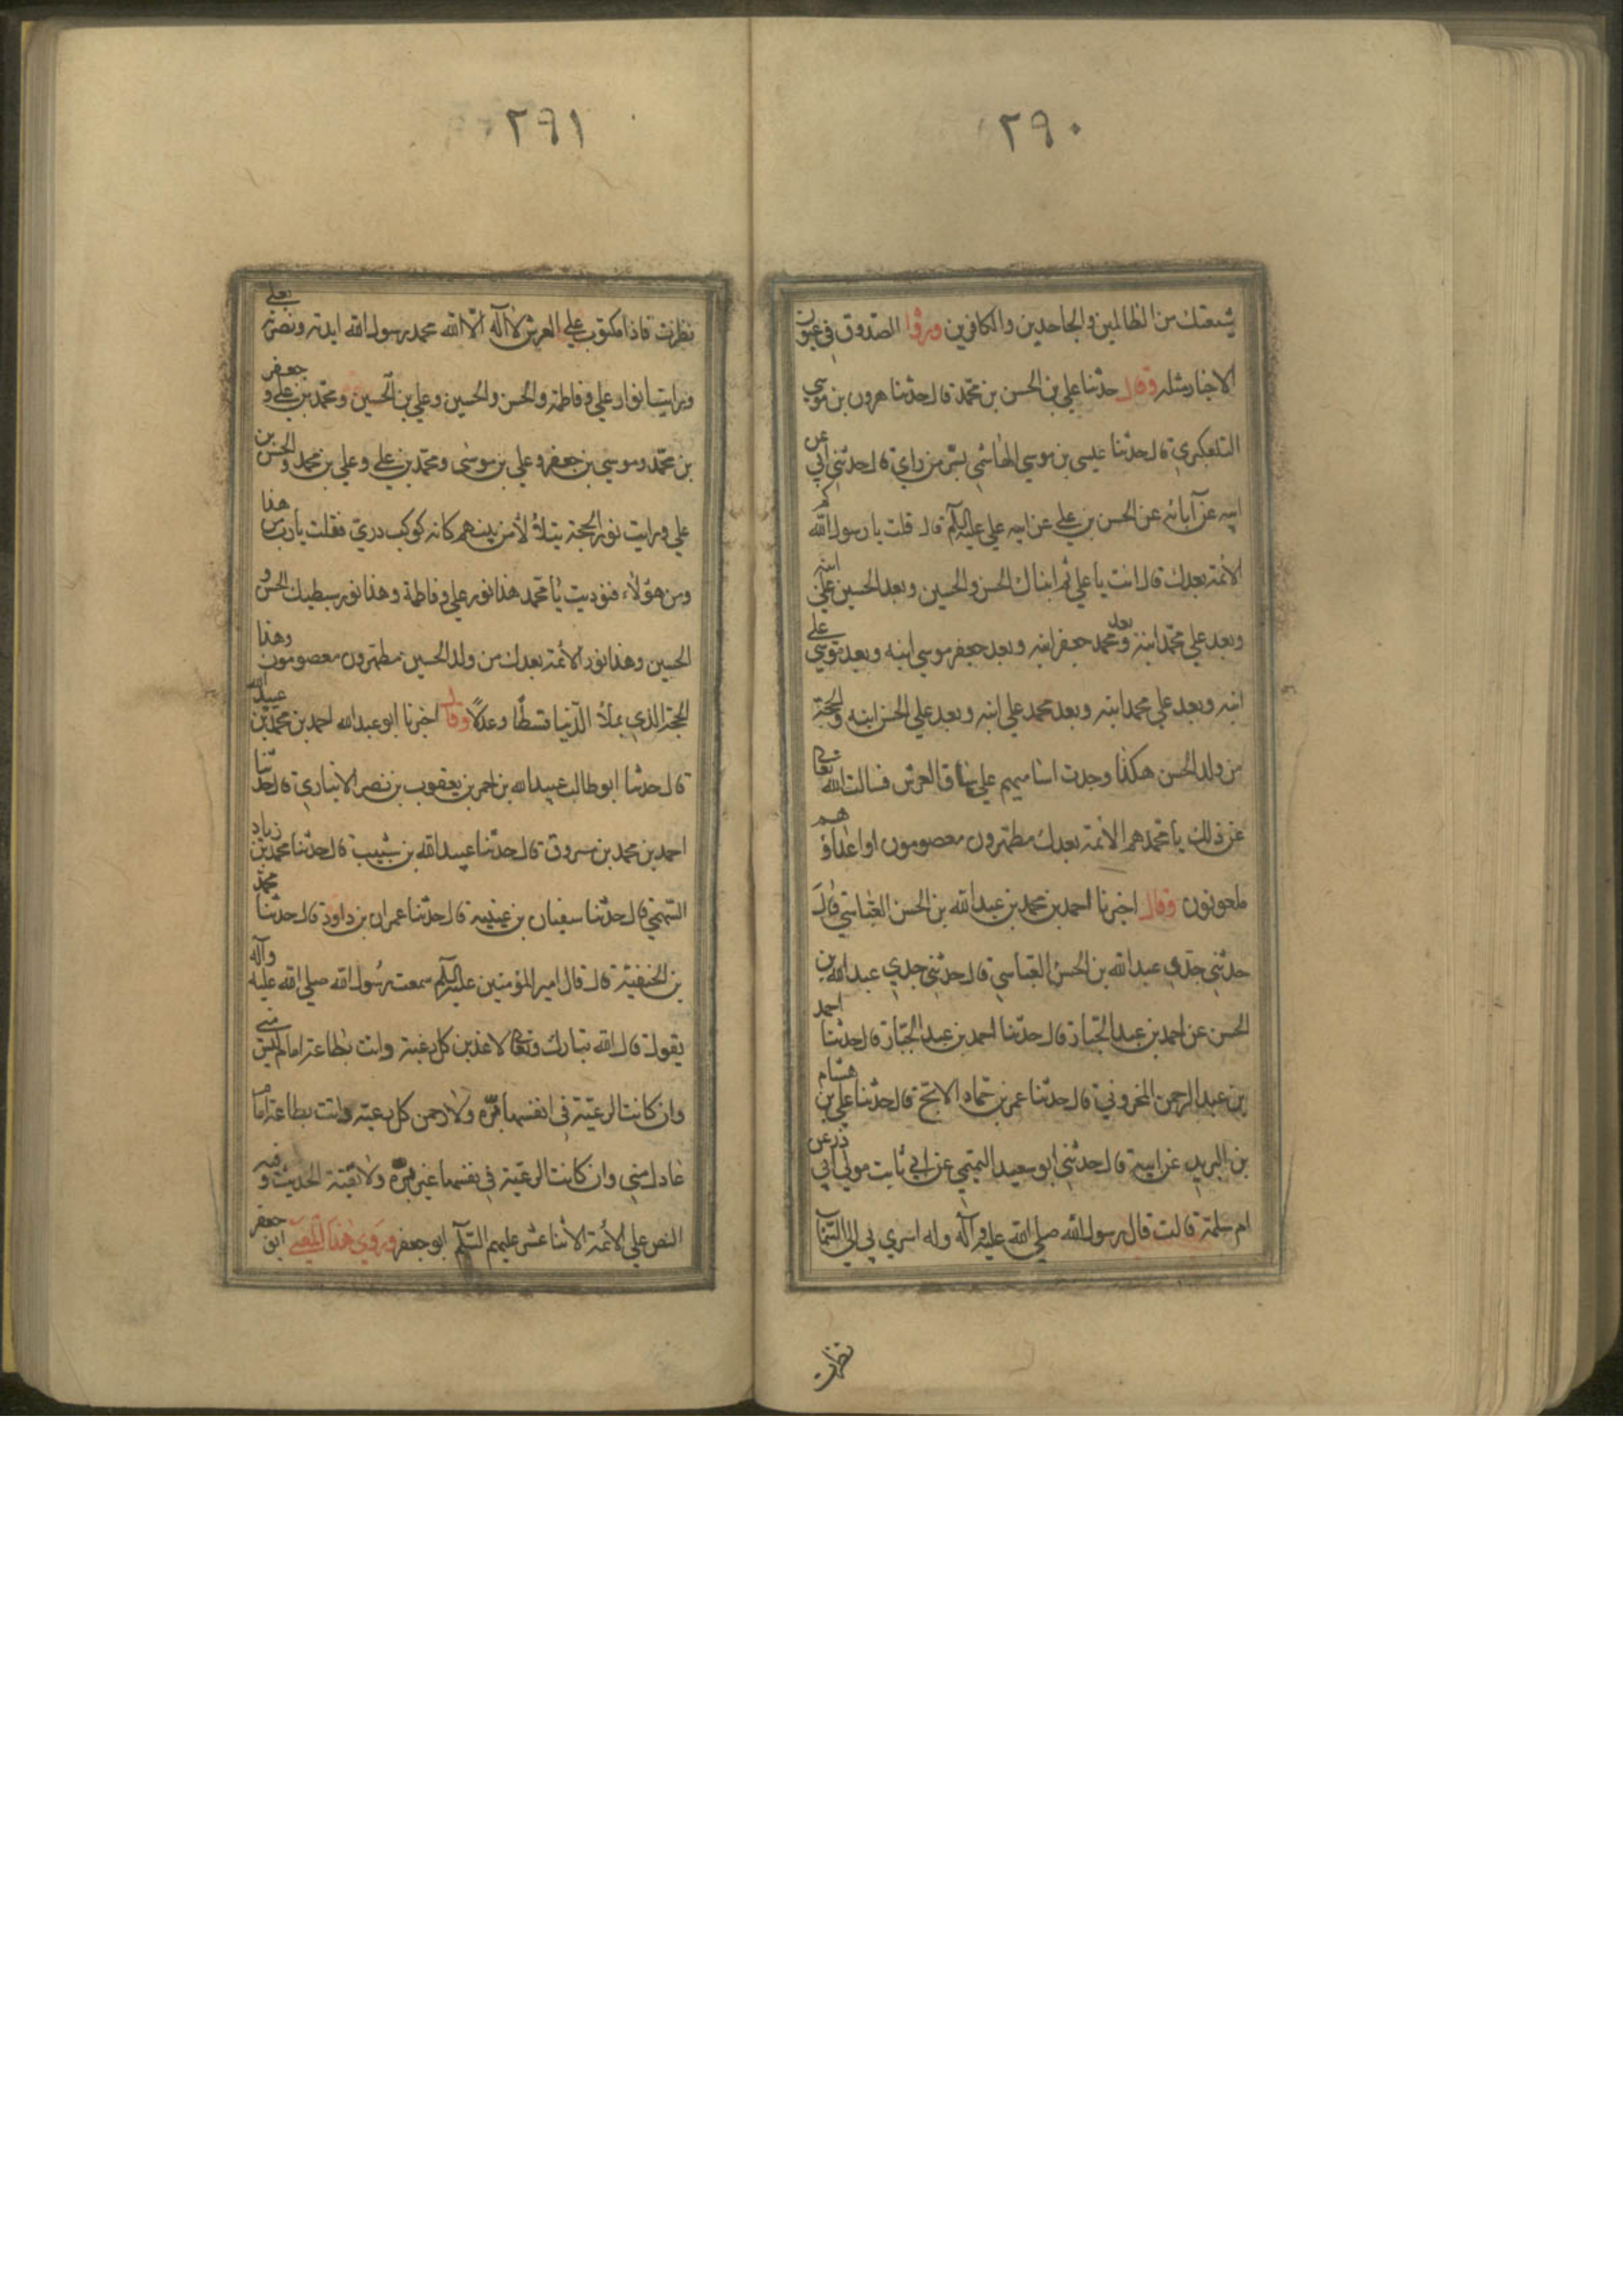 ٢٩٠
شيعتك من الظالمين والجاحدين والكافرين وروا الصدوق في عيون
الاخبار مثله وقال حدثنا علي بن الحسن بن محمد قال حدثنا هرون بن موسي
التلعكبري قال حدثنا عيسى بن موسي الهاشمي بسر من راي قال حدثني ابي عن
ابيه عن آبائه عن الحسن بن علي عن ابيه علي عليه السلم قال قلت يا رسول الله كم
الائمة بعدك قال انت يا علي ثم ابناك الحسن والحسين وبعد الحسين علي ابنه
وبعد علي محمد ابنه وبعد محمد جعفر ابنه وبعد جعفر موسي ابنه وبعد موسي علي
ابنه وبعد علي محمد ابنه وبعد محمد علي ابنه وبعد علي الحسن ابنه والحجة
من ولد الحسن هكذا وجدت اساميهم علي ساق العرش فسالت الله تعالى
عن ذلك يا محمد هم الائمة بعدك مطهرون معصومون واعداؤهم
ملعونون وقال اخبرنا احمد بن محمد بن عبد الله بن الحسن العياشي قال
حدثني جدي عبد الله بن الحسن العباسي قال حدثني جدي عبد الله بن
الحسن عن احمد بن عبد الجبار قال حدثنا احمد بن عبد الجبار قال حدثنا احمد
بن عبد الرحمن المخزومي قال حدثنا عمر بن حماد الابتح قال حدثنا علي بن هشام
بن البريد عن ابيه قال حدثني ابو سعيد التميمي عن ابي ثابت مولي ابي ذر عن
ام سلمة قالت قال رسول الله صلي الله عليه وآله وله اسري بي الي السماء
نظرت
٢٩١
نظرت فاذا مكتوب علي العرش لا اله الا الله محمد رسول الله ايدته ونصرته بعلي
ورايت انوار علي وفاطمة والحسن والحسين وعلي بن الحسين ومحمد بن علي وجعفر
بن محمد وموسي بن جعفر وعلي بن موسى ومحمد بن علي وعلي بن محمد والحسن بن
علي ورايت نور الحجة يتلألأ من بينهم كانه كوكب دري فقلت يا رب من هذا
ومن هؤلاء فنوديت يا محمد هذا نور علي وفاطمة وهذا نور سبطيك الحسن و
الحسين وهذا نور الائمة بعدك من ولد الحسين مطهرون معصومون وهذا
الحجة الذي يملأ الدنيا قسطا وعدلا وقال اخبرنا ابو عبد الله احمد بن محمد بن عبيد الله
قال حدثنا ابو طالب عبيد الله بن احمد بن يعقوب بن نصر الانباري قال حدثنا
احمد بن محمد بن مسروق قال حدثنا عبيد الله بن شبيب قال حدثنا محمد بن زياد
السهمي قال حدثنا سفيان بن عيينة قال حدثنا عمران بن داود قال حدثنا محمد
بن الحنفية قال قال امير المؤمنين عليه السلم سمعت رسول الله صلي الله عليه وآله
يقول قال الله تبارك وتعالى لاعذبن كل رعية دانت بطاعة امام ليس مني
وان كانت الرعية في انفسها برة ولارحمن كل رعية دانت بطاعة امام
عادل مني وان كانت الرعية في نفسها غير برة ولا تقية الحديث وفيه
النص علي الائمة الاثنا عشر عليهم السلم وروي هذا ابو جعفر ابن جعفر